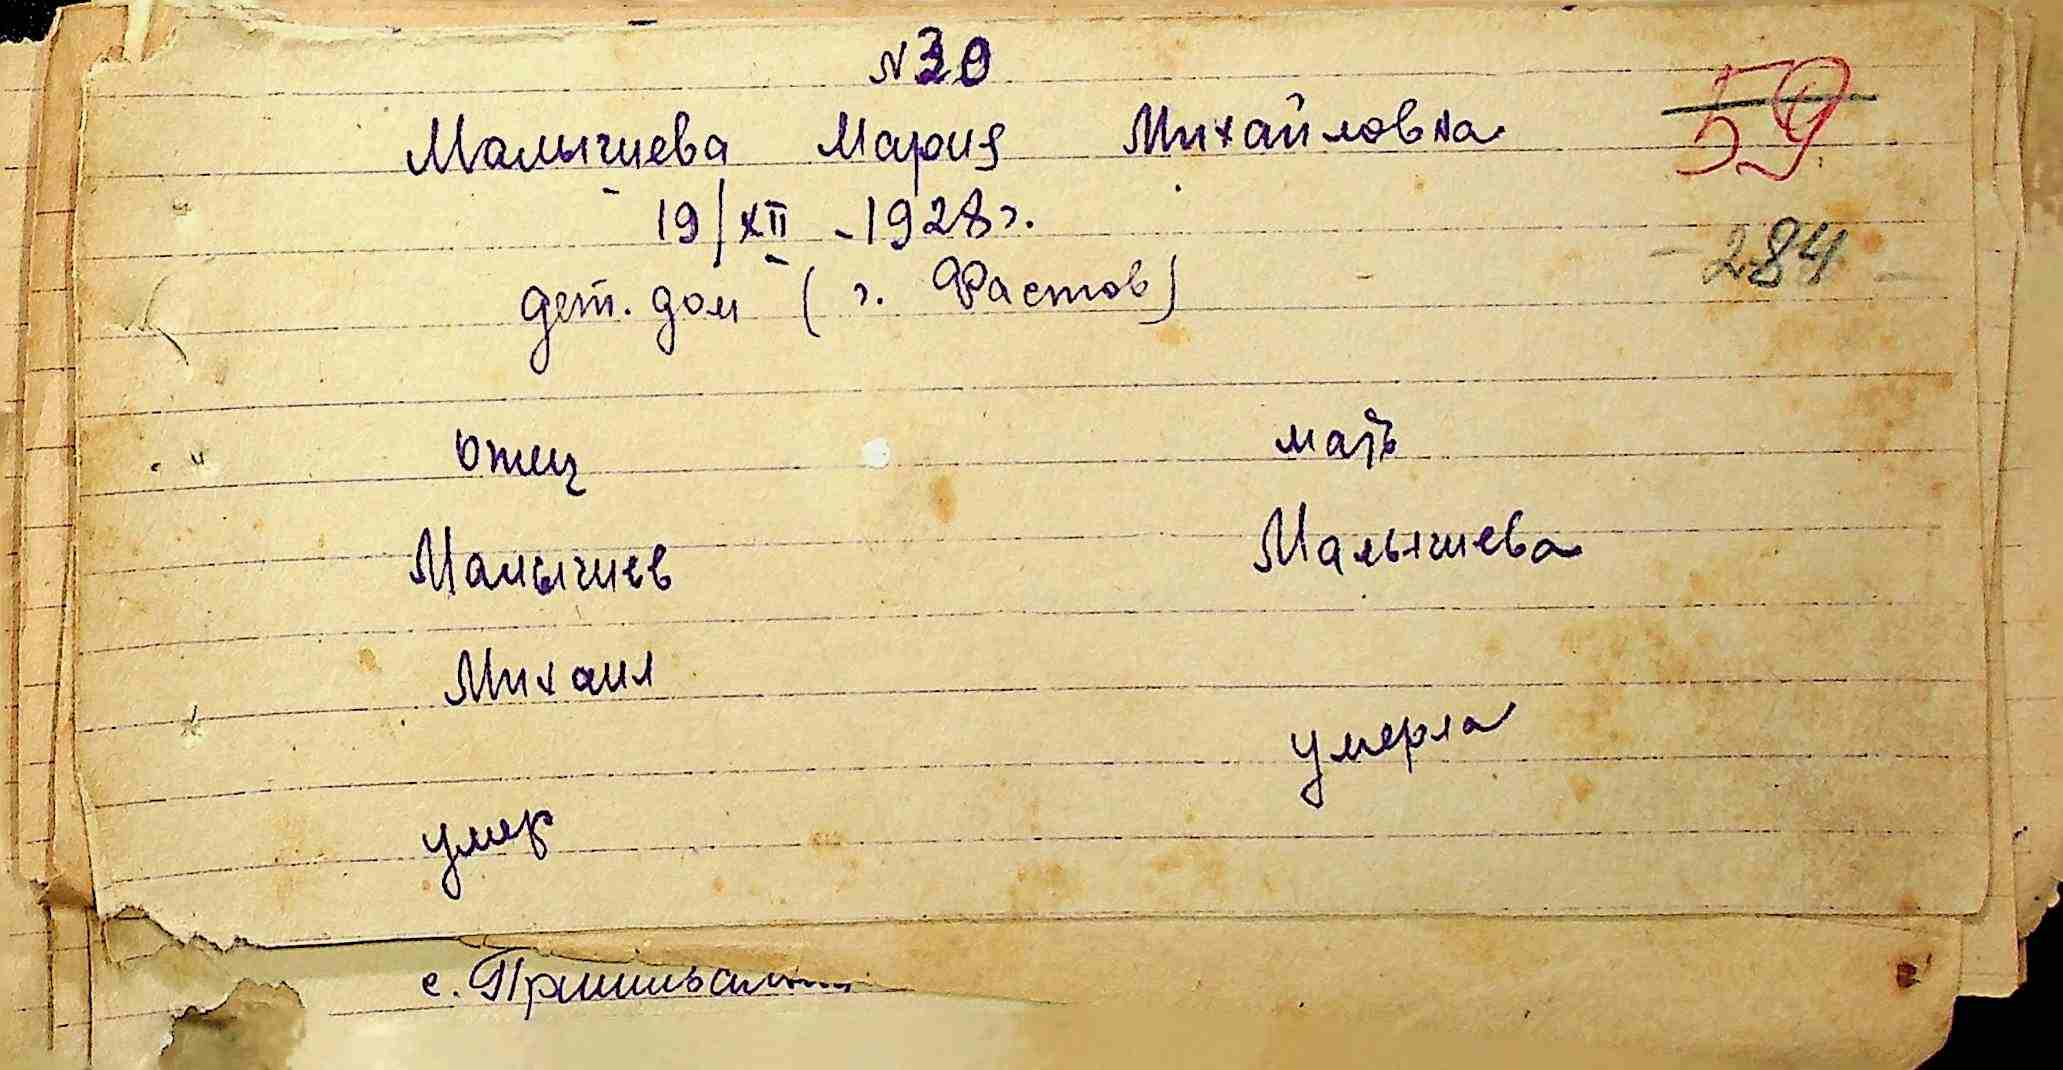 № 30
Малышева Мария Михайловна 59
19/XII - 1928 г. - 284 -
дет. дом (г. Фастов)
Отец мать
Малышев Малышева
Михаил
умерла
умер
с.